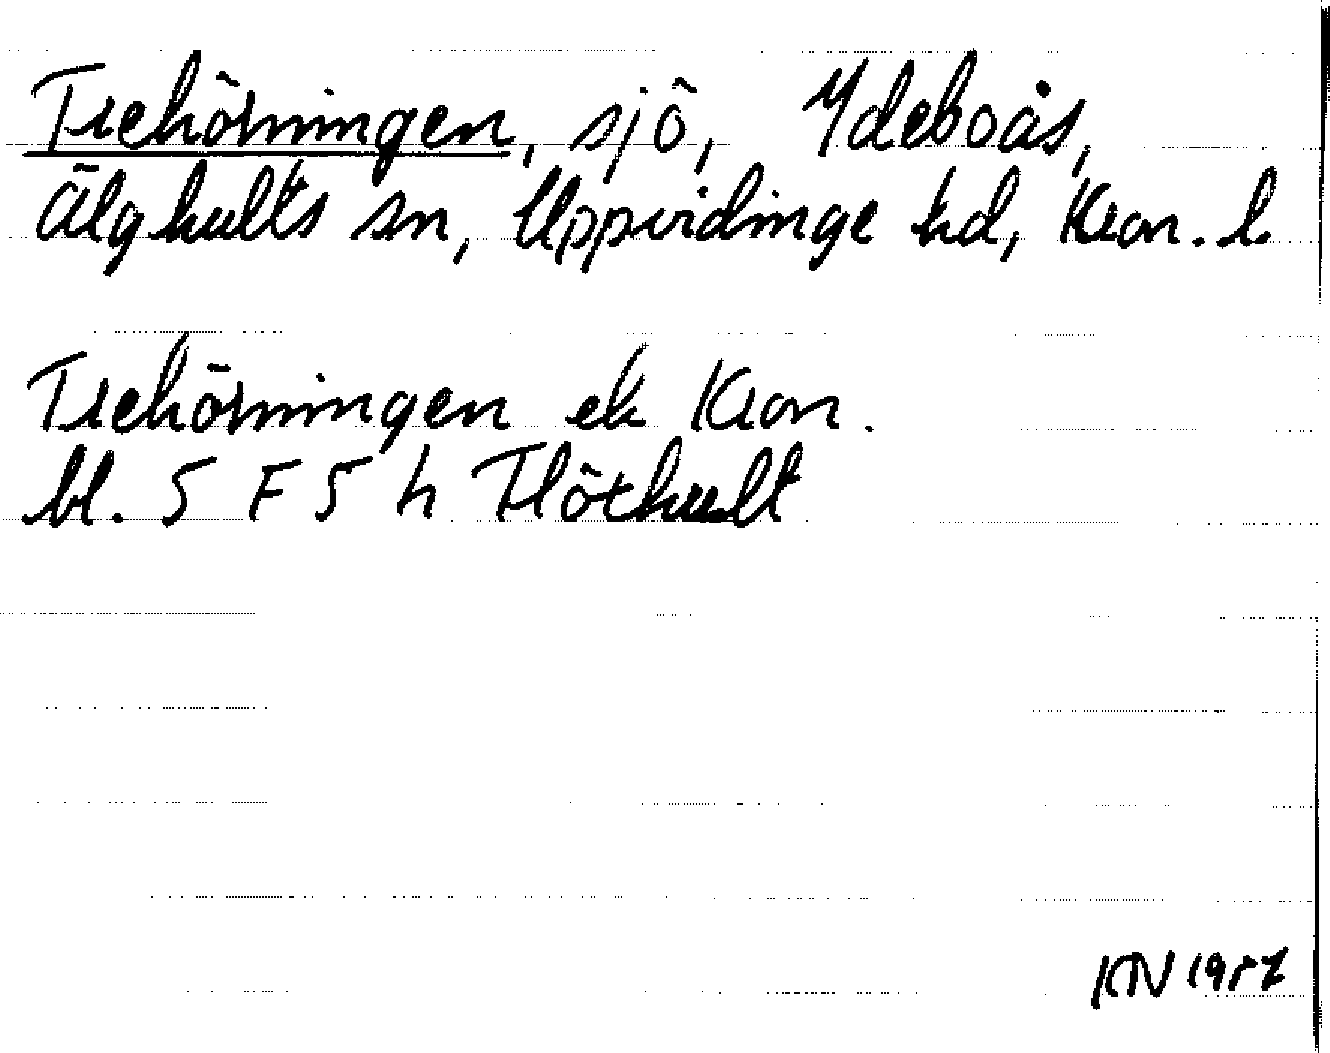 Trehörningen, sjö, Ydeboås,
Älghults sn, Uppvidinge hd, Kron. l
Trehörningen ek Kron.
bl. 5 F 5 h Flöthult
KN 1987